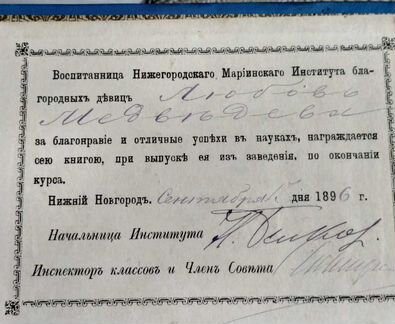 Воспитанница Нижегородскаго Маріинскаго Института бла-
городныхъ дѣвицъ Любовь
Медвѣдева
за благонравіе и отличные успѣхи въ наукахъ, награждается
сею книгою, при выпускѣ ея изъ заведенія, по окончаніи
курса.
Нижній Новгородъ. Сентября дня 1896 г.
Начальница Института
Инспекторъ классовъ и Членъ Совѣта